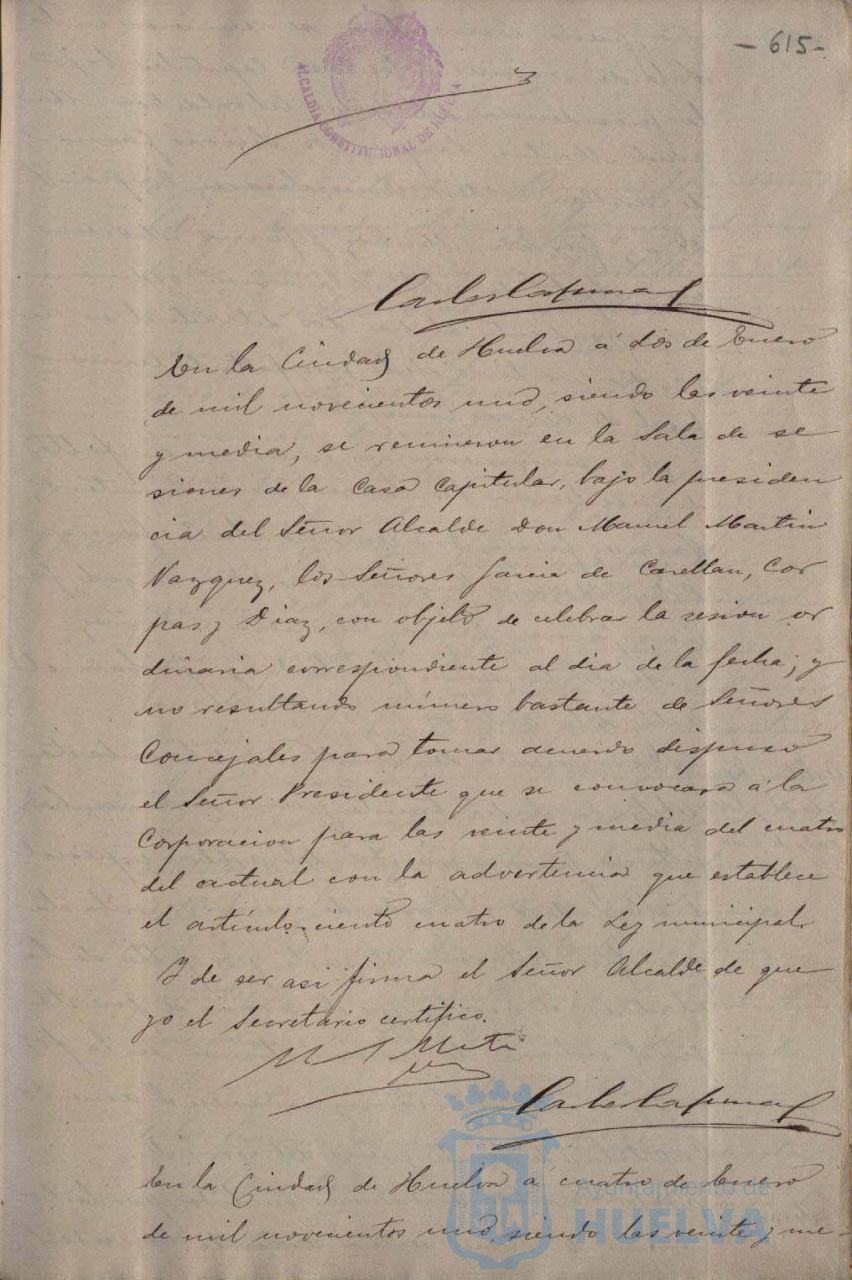 - 615 -
ALCALDIA CONSTITUCIONAL DE HUELVA
En la Ciudad de Huelva á dos de Enero
de mil novecientos uno, siendo las veinte
y media, se reunieron en la Sala de se
siones de la Casa Capitular, bajo la presiden
cia del Señor Alcalde Don Manuel Martin
Vazquez, los Señores Garcia de Castellan, Cor
pas y Diaz, con objeto de celebrar la sesion or
dinaria correspondiente al dia de la fecha; y
no resultando número bastante de Señores
Concejales para tomar acuerdo dispuso
el Señor Presidente que se convocara á la
Corporacion para las veinte y media del cuatro
del actual con la advertencia que establece
el artículo ciento cuatro de la Ley municipal.
Y de ser asi firma el Señor Alcalde de que
yo el Secretario certifico.
En la Ciudad de Huelva á cuatro de Enero
de mil novecientos uno, siendo las veinte y me-
Ayuntamiento de
HUELVA